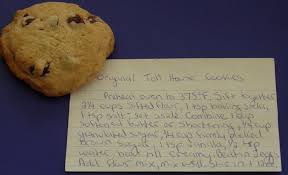 Original Toll House Cookies
Preheat oven to 375°F. Sift together
2¼ cups sifted flour, 1 tsp baking soda,
1 tsp salt; set aside. Combine 1 cup
softened butter or shortening, ¾ cup
granulated sugar, ¾ cup firmly packed
brown sugar, 1 tsp vanilla, ½ tsp
water beat till creamy. Beat in 2 eggs
Add flour mix, mix well. Stir in 1 12oz